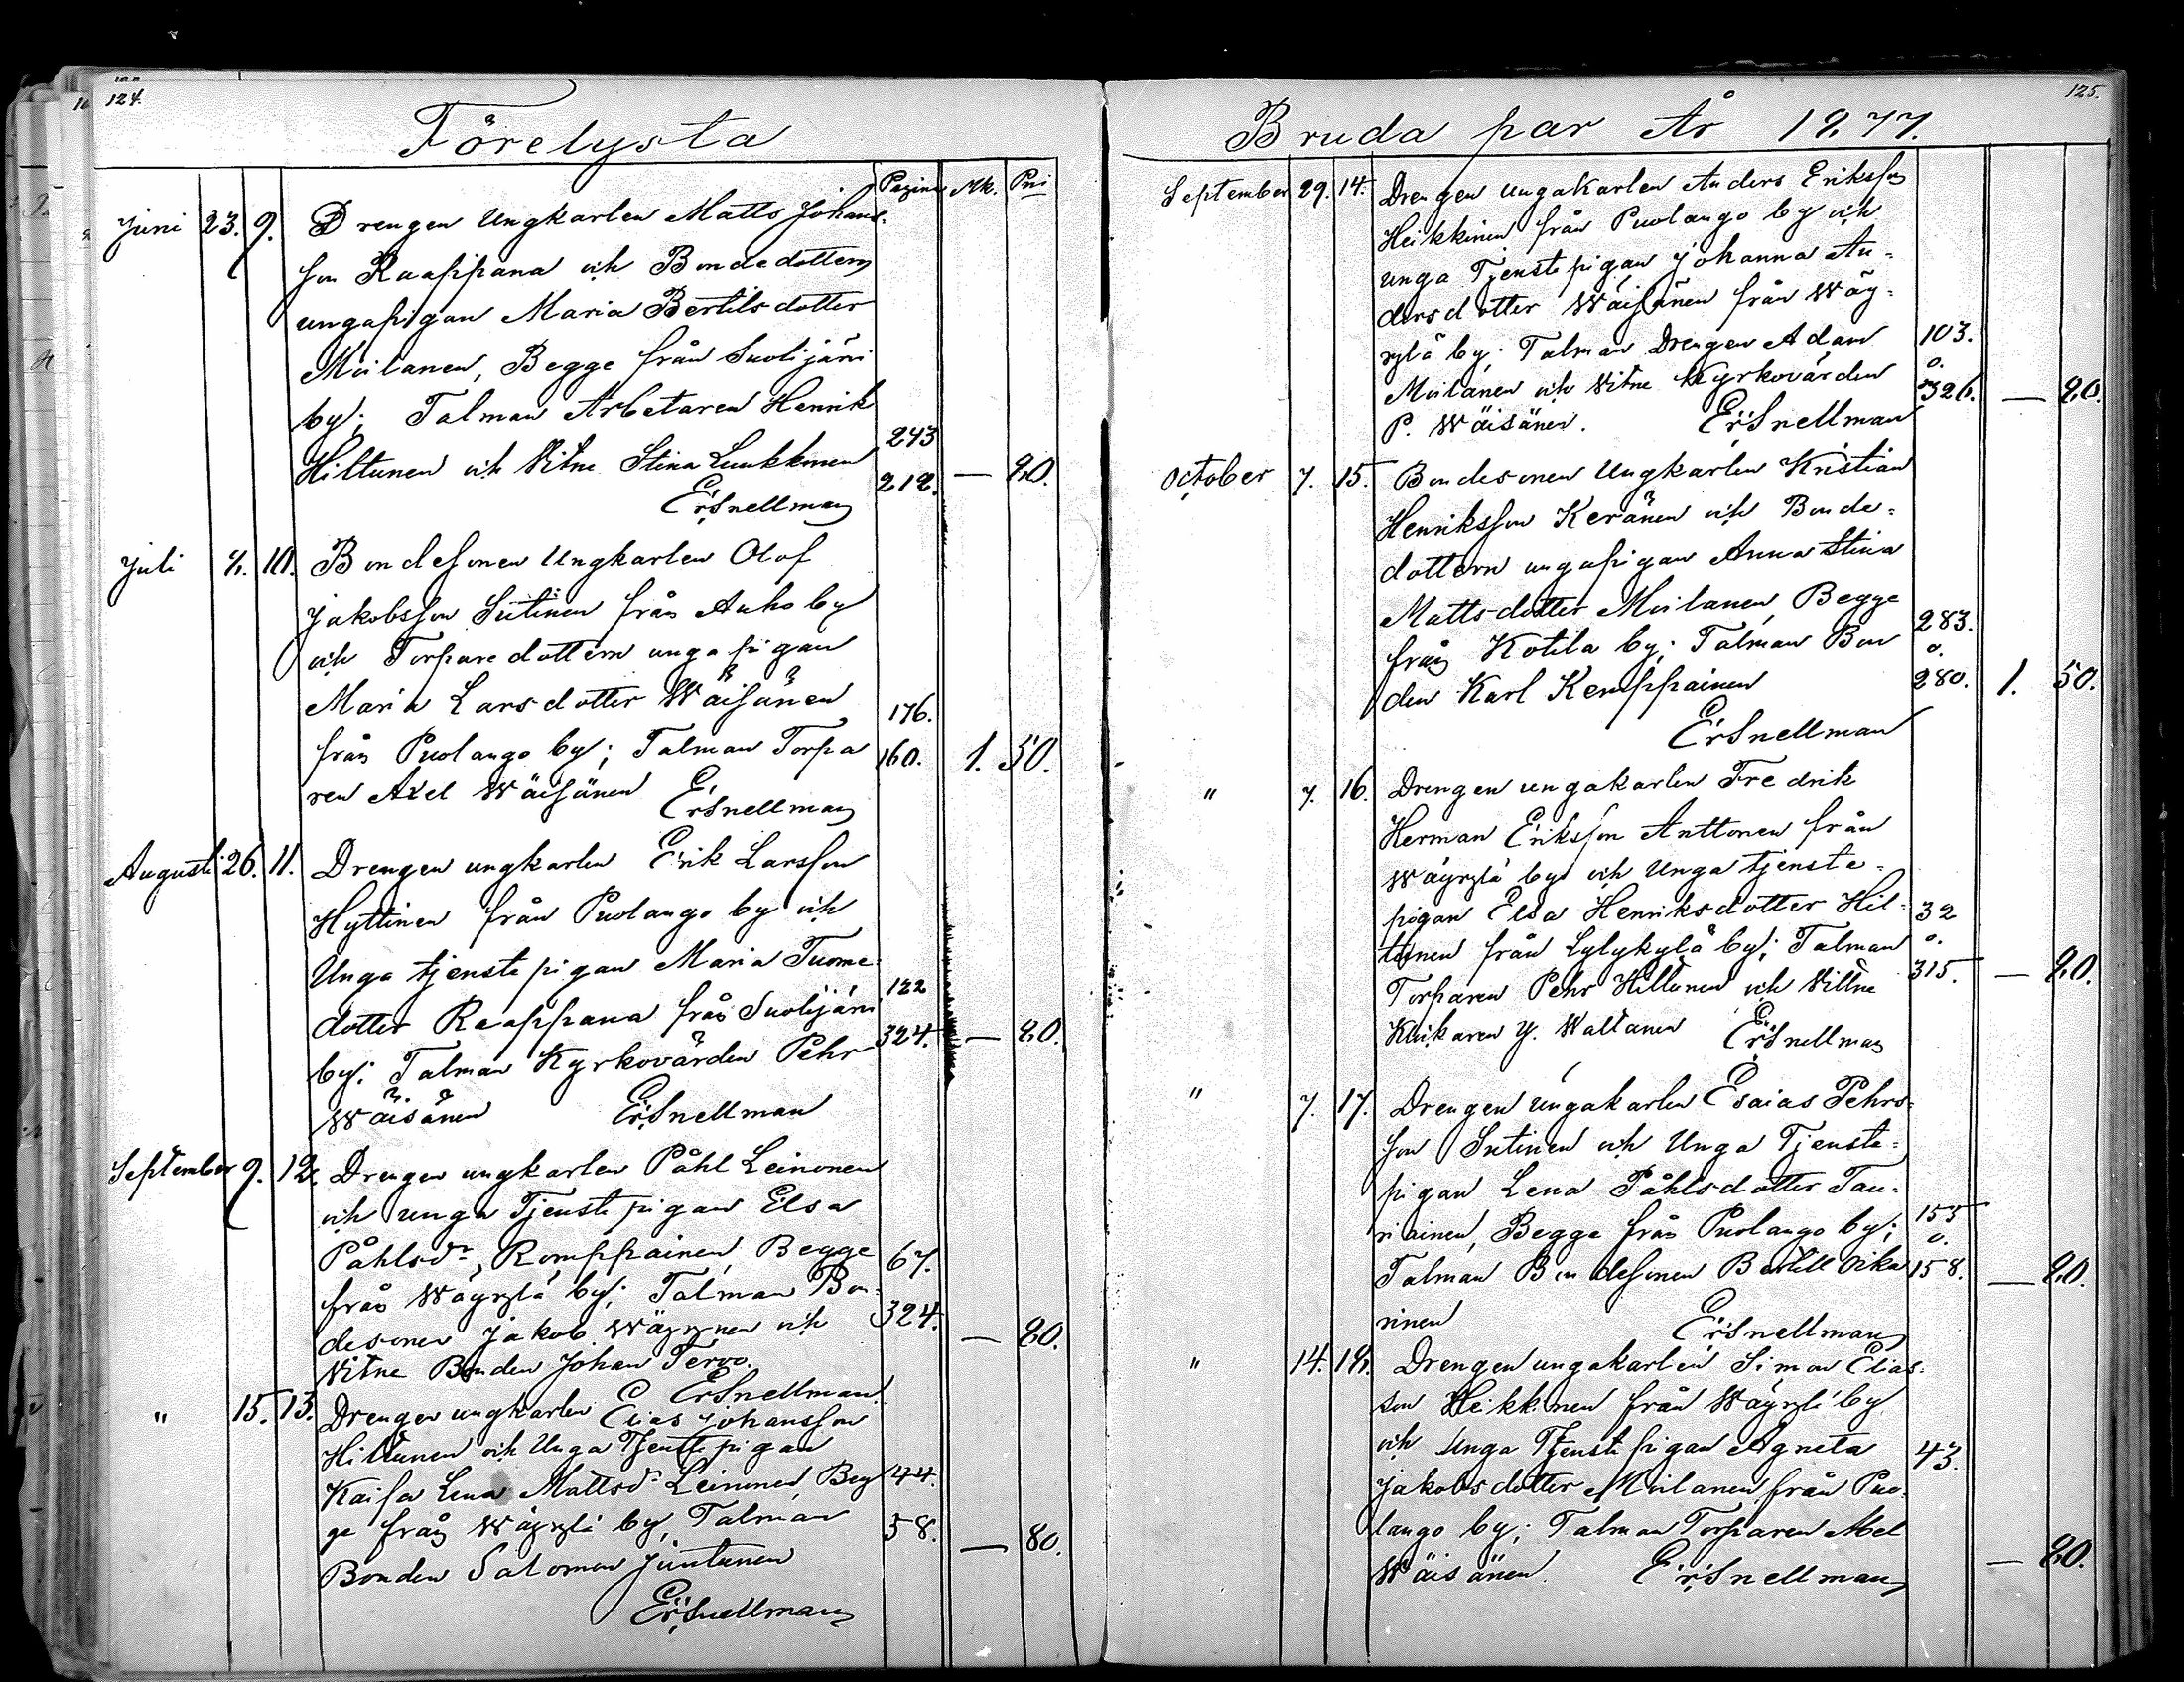 124.
Förelysta
Pagina Mk. Pni
Juni 23. 9. Drengen Ungkarlen Matts Johans-
son Raappana och Bondedottern
ungapigan Maria Bertilsdotter
Moilanen, Begge från Suolijärvi
by; Talman Arbetaren Henrik 243
Hiltunen och Vitne Stina Luukkonen 212. — 80.
Er. Snellman
Juli 8. 10. Bondesonen Ungkarlen Olof
Jakobsson Sutinen från Auho by
och Torparedottern ungapigan
Maria Larsdotter Wäisänen 176.
från Puolango by; Talman Torpa 160. 1. 50.
ren Axel Wäisänen Er. Snellman
Augusti 26. 11. Drengen ungkarlen Erik Larsson
Hyttinen från Puolango by och
Unga tjenstepigan Maria Tuome-
dotter Raappana från Suolijärvi 122
by: Talman Kyrkovärden Pehr 324. — 80.
Wäisänen Er. Snellman
September 9. 12. Drengen ungkarlen Påhl Leinonen
och unga Tjenstepigan Elsa
Påhlsdr, Romppainen, Begge 67.
från Wäyrylä by; Talman Bon-
desonen Jakob Wäyrynen och 324. — 80.
Vitne Bonden Johan Tervo.
Er. Snellman
" 15. 13. Drengen ungkarlen Elias Johansson
Hiltunen och Unga Tjenstepigan
Kaisa Lena Mattsdr Leinonen, Beg 44.
ge från Wäyrylä by, Talman 58. — 80.
Bonden Salomon Juntunen
Er. Snellman
125.
Bruda par År 1877.
September 29. 14. Drengen ungakarlen Anders Eriksson
Heikkinen från Puolango by och
unga Tjenstepigan Johanna An-
dersdotter Wäisänen från Wäy-
rylä by; Talman Drengen Adam 103.
Moilanen och Vitne Kyrkovärden o. 326. — 80.
P. Wäisänen. Er. Snellman
October 7. 15. Bondesonen Ungkarlen Kristian
Henriksson Keränen och Bonde-
dottern ungapigan Anna Stina
Mattsdotter Moilanen, Begge 283.
från Kotila by; Talman Bon o.
den Karl Kemppainen 280. 1. 50.
Er. Snellman
" 7. 16. Drengen ungakarlen Fredrik
Herman Eriksson Anttonen från
Wäyrylä by och Unga tjenste-
pigan Elsa Henriksdotter Hil- 32
tunen från Lylykylä by; Talman o.
Torparen Pehr Hiltunen och Vittne 315. — 80.
Klockaren Y. Waltanen Er. Snellman
" 7. 17. Drengen ungakarlen Esaias Pehrs-
son Sutinen och Unga Tjenste-
pigan Lena Påhlsdotter Tau-
riainen, Begge från Puolango by; 155 o.
Talman Bondesonen Bertill Oika 158. — 80.
rinen Er. Snellman
" 14. 18. Drengen ungakarlen Simon Elias-
son Heikkinen från Wäyrylä by
och Unga Tjenstepigan Agneta 43.
Jakobsdotter Moilanen från Puo-
lango by; Talman Torparen Abel
Wäisänen. Er. Snellman — 80.